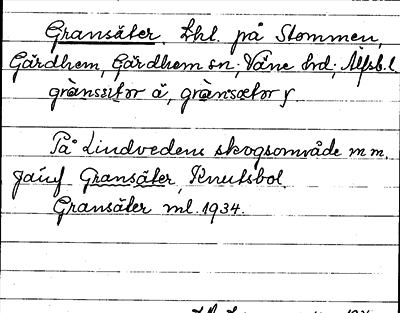 Gransäter, Lhl. på Stommen,
Gärdhem, Gärdhem sn; Väne hd; Älfsb. l.
grànssitor ä, grànsætor y
På Lindvedens skogsområde m m.
Jämf Gransäter, Knutsbol.
Gransäter ml. 1934.